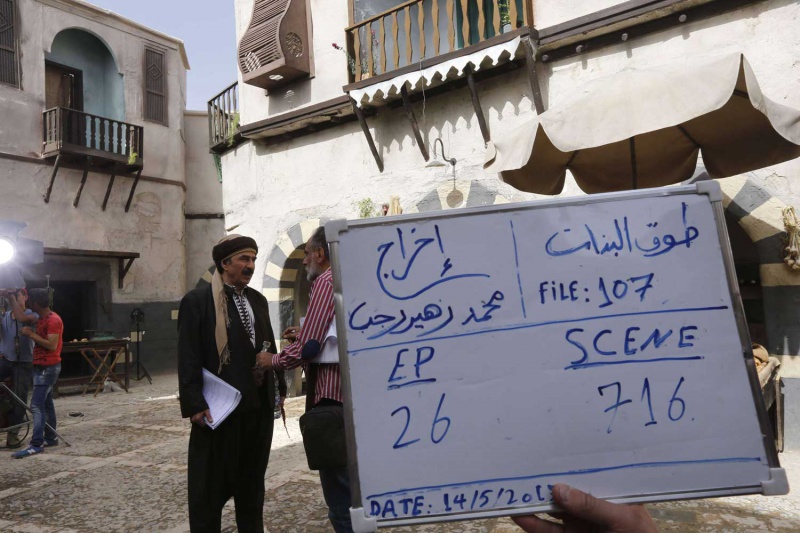 طوق البنات
FILE: 107
إخراج
محمد زهير رجب
EP
26
SCENE
716
DATE: 14/5/201